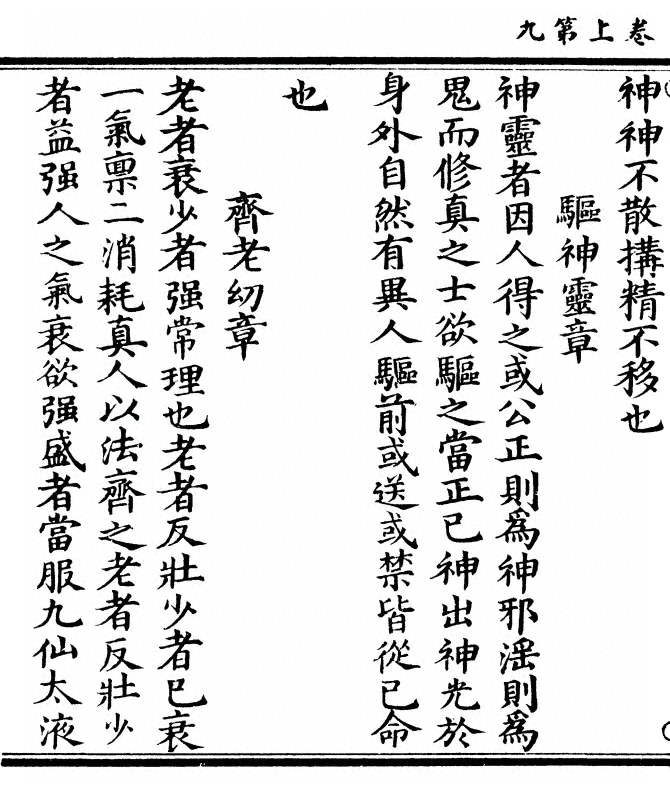 卷上第九
神神不散搆精不移也
驅神靈章
神靈者因人得之或公正則爲神邪淫則爲
鬼而修真之士欲驅之當正已神出神光於
身外自然有異人驅前或送或禁皆從已命
也
齊老幼章
老者衰少者强常理也老者反壯少者已衰
一氣稟二消耗真人以法齊之老者反壯少
者益强人之氣衰欲强盛者當服九仙太液